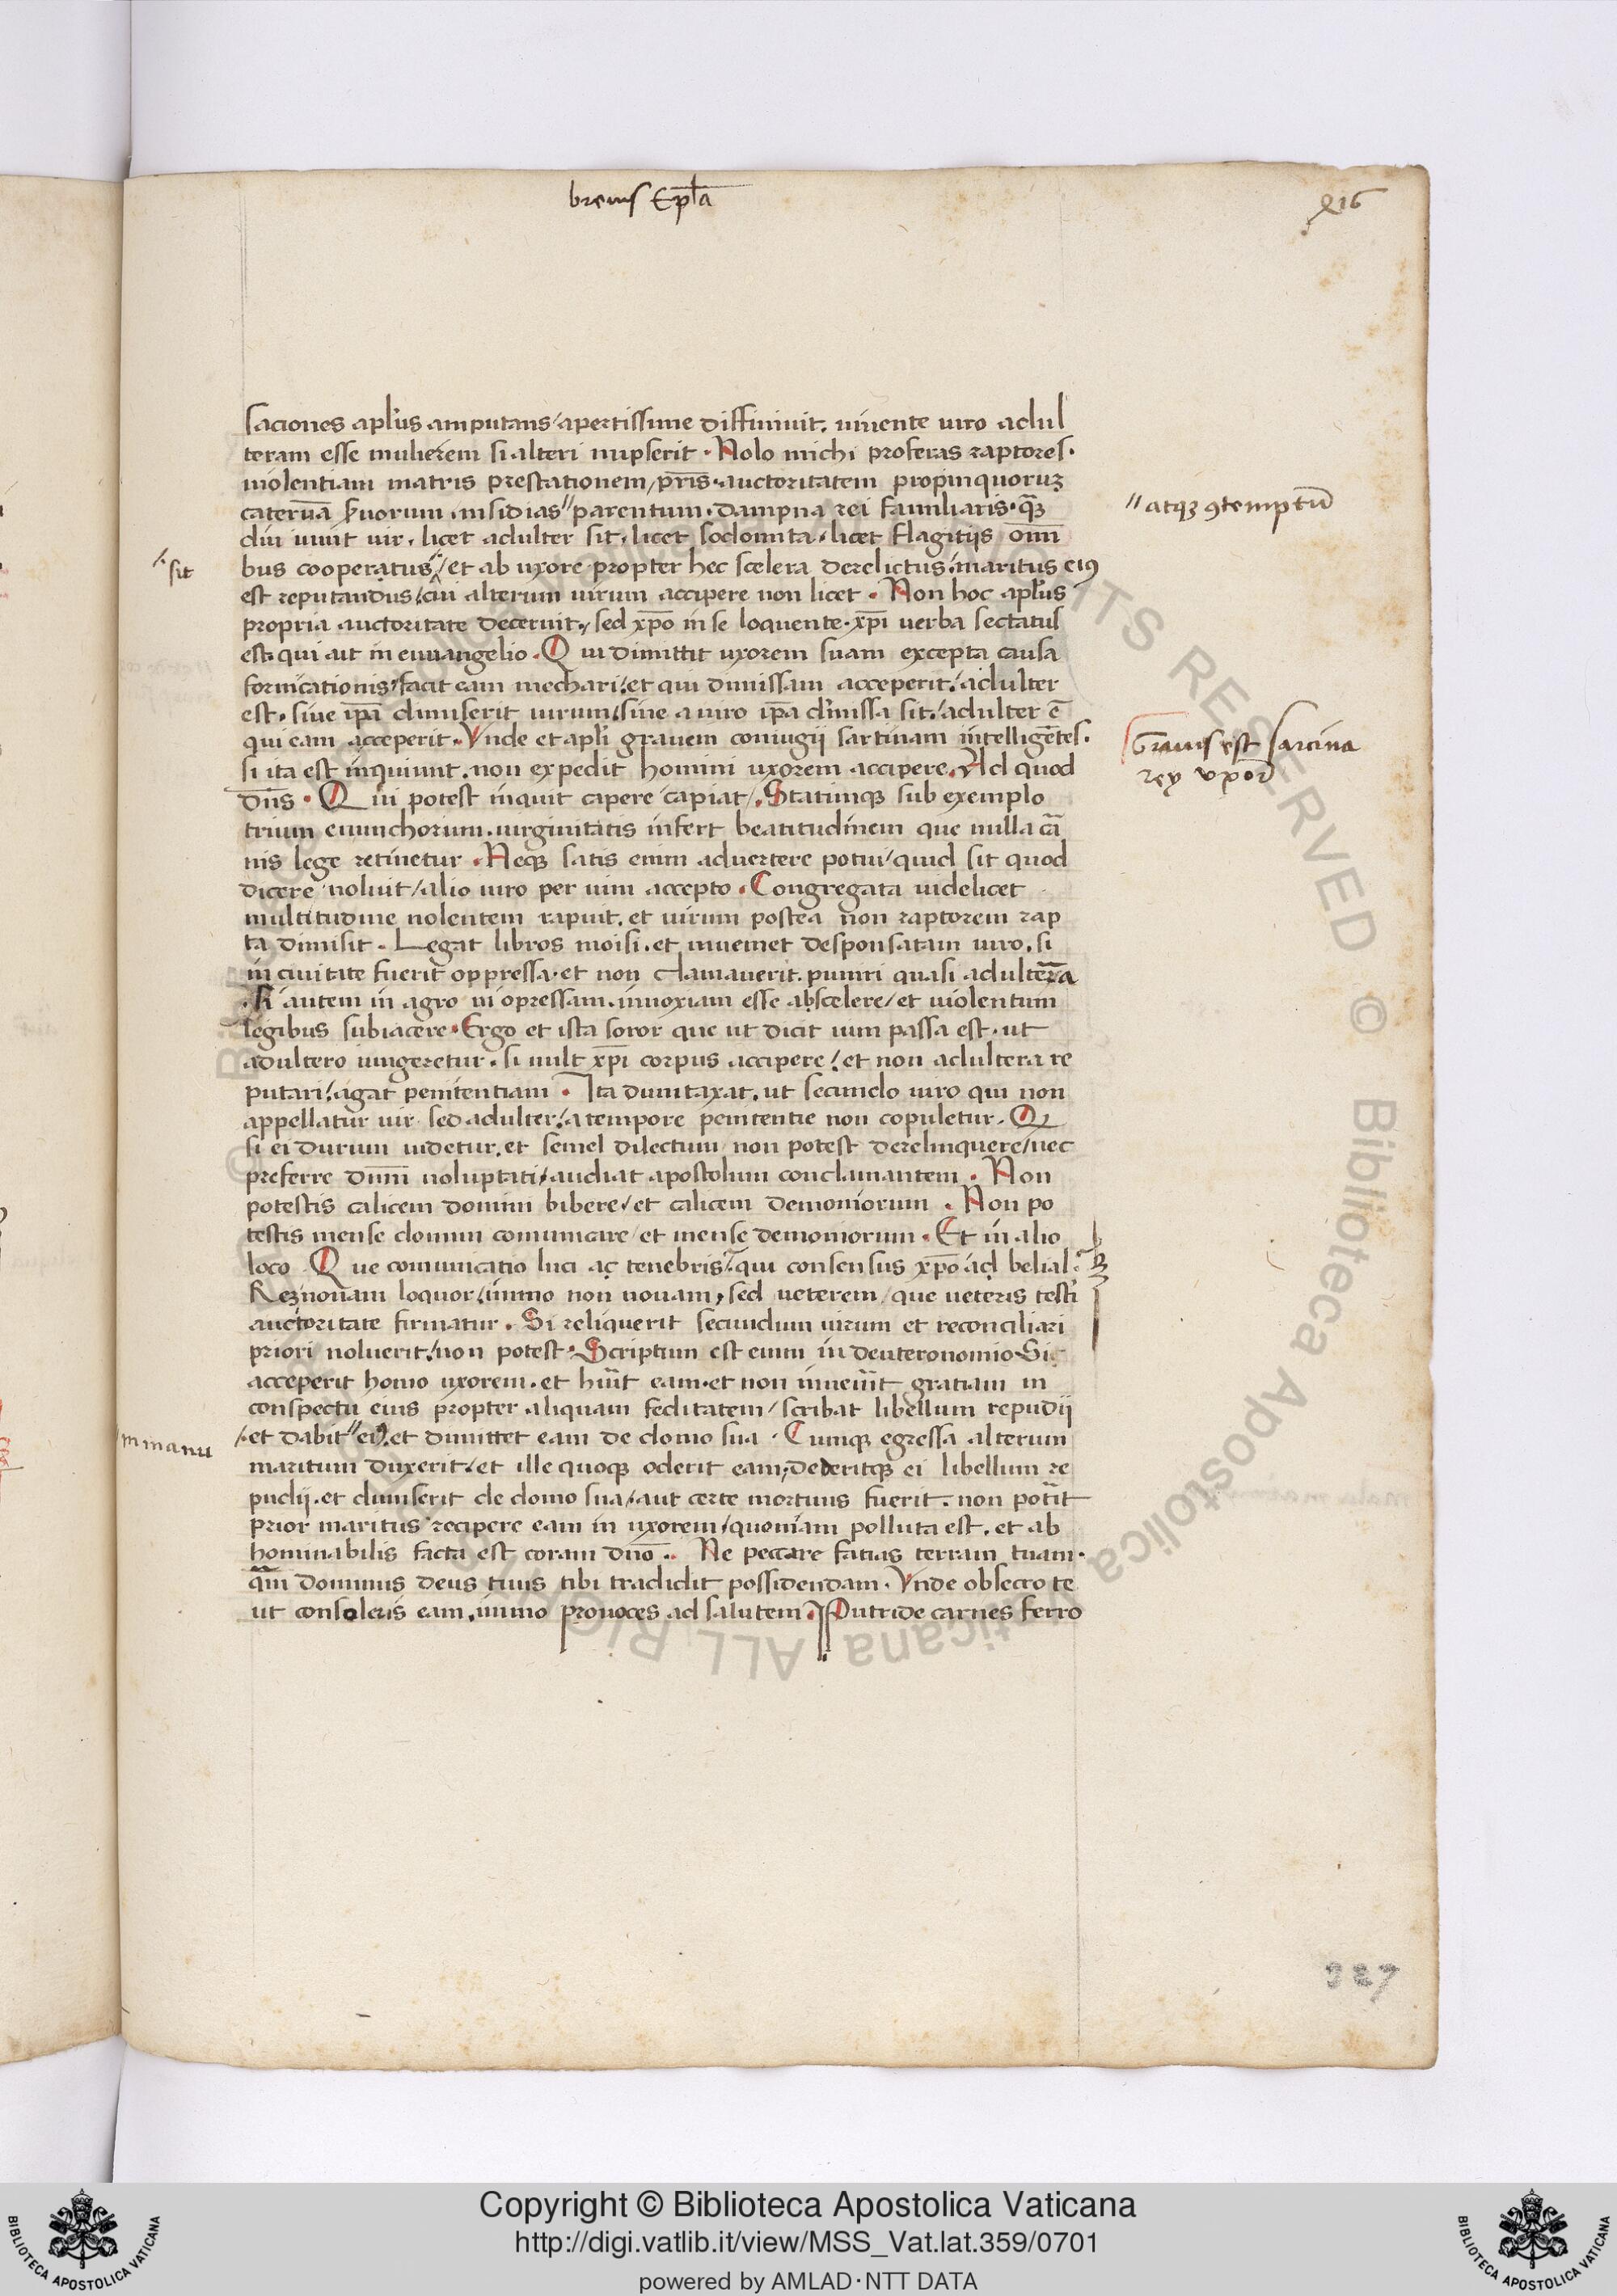 breuis Ep̄la
saciones apl'us amputans/apertissime diffiniuit. uiuente uiro adul
teram esse mulierem si alteri nupserit . Nolo michi proferas raptores.
uiolentiam matris prestationem/pr̄is.auctoritatem propinquoruꝫ
cateruā ẜuorum.insidias〃parentum.dampna rei familiaris.quā
〃atqꝫ ꝯtemptū
diu uiuit uir. licet adulter sit. licet sodomita. licet flagitijs om̄i
bus cooperatus/et ab uxore propter hec scelera derelictus.maritus eiꝰ
sit
est reputandus/cui alterum uirum accipere non licet . Non hoc apl'us
propria auctoritate decernit./sed xp̄o in se loquente.xp̄i uerba sectatus
est.qui ait in euuangelio . Qui dimittit uxorem suam excepta causa
fornicationis/facit eam mechari/et qui dimissam acceperit/adulter
est. siue ip̄a dimiserit uirum/siue a uiro ip̄a dimissa sit/adulter ē
qui eam acceperit . Vnde et apl'i grauem coniugij sarcinam intelligētes.
Grauis est sarcina
rey vxor
si ita est inquiunt.non expedit homini uxorem accipere. Ad quod
dn̄s . Qui potest inquit capere capiat/. Statimqꝫ sub exemplo
trium eunuchorum.uirginitatis infert beatitudinem que nulla cā
nis lege retinetur . Neqꝫ satis enim aduertere potui/quid sit quod
dicere uoluit/alio uiro per uim accepto . Congregata uidelicet
multitudine nolentem rapuit. et uirum postea non raptorem rap
ta dimisit . Legat libros moisi. et inueniet desponsatam uiro. si
in ciuitate fuerit oppressa.et non clamauerit. puniri quasi adulterā
. si autem in agro ui opressam.innoxiam esse abscelere/et uiolentum
legibus subiacere . Ergo et ista soror que ut dicit uim passa est. ut
adultero iungeretur . si uult xp̄i corpus accipere/et non adultera re
putari/agat penitentiam . Ita dumtaxat. ut secundo uiro qui non
appellatur uir sed adulter/a tempore penitentie non copuletur. Q
si ei durum uidetur. et semel dilectum non potest derelinquere/nec
preferre dn̄m uoluptati/audiat apostolum conclamantem . Non
potestis calicem domini bibere/et calicem demoniorum . Non po
testis mense domini comunicare/et mense demoniorum . Et in alio
loco . Que comunicatio luci ac tenebris/qui consensus xp̄o ad belial.
Rem nouam loquor/immo non nouam, sed ueterem/que ueteris testi
auctoritate firmatur . Si reliquerit secundum uirum et reconciliari
priori noluerit/non potest. Scriptum est enim in deuteronomio Si
acceperit homo uxorem.et hūit eam.et non inuenīt gratiam in
conspectu eius propter aliquam feditatem/scribat libellum repudij
/.et dabit〃ei.et dimittet eam de domo sua . Cumqꝫ egressa alterum
in manu
maritum duxerit/et ille quoqꝫ oderit eam/dederitqꝫ ei libellum re
pudij.et dimiserit de domo sua/aut certe mortuus fuerit. non pot̄it
prior maritus recipere eam in uxorem/quoniam polluta est. et ab
hominabilis facta est coram dn̄o . Ne peccare facias terram tuam.
quā dominus deus tuus tibi tradidit possidendam . Vnde obsecro te
ut consoleris eam.immo prouoces ad salutem . Putride carnes ferro
327
Copyright © Biblioteca Apostolica Vaticana
http://digi.vatlib.it/view/MSS_Vat.lat.359/0701
powered by AMLAD·NTT DATA
BIBLIOTECA APOSTOLICA VATICANA
BIBLIOTECA APOSTOLICA VATICANA